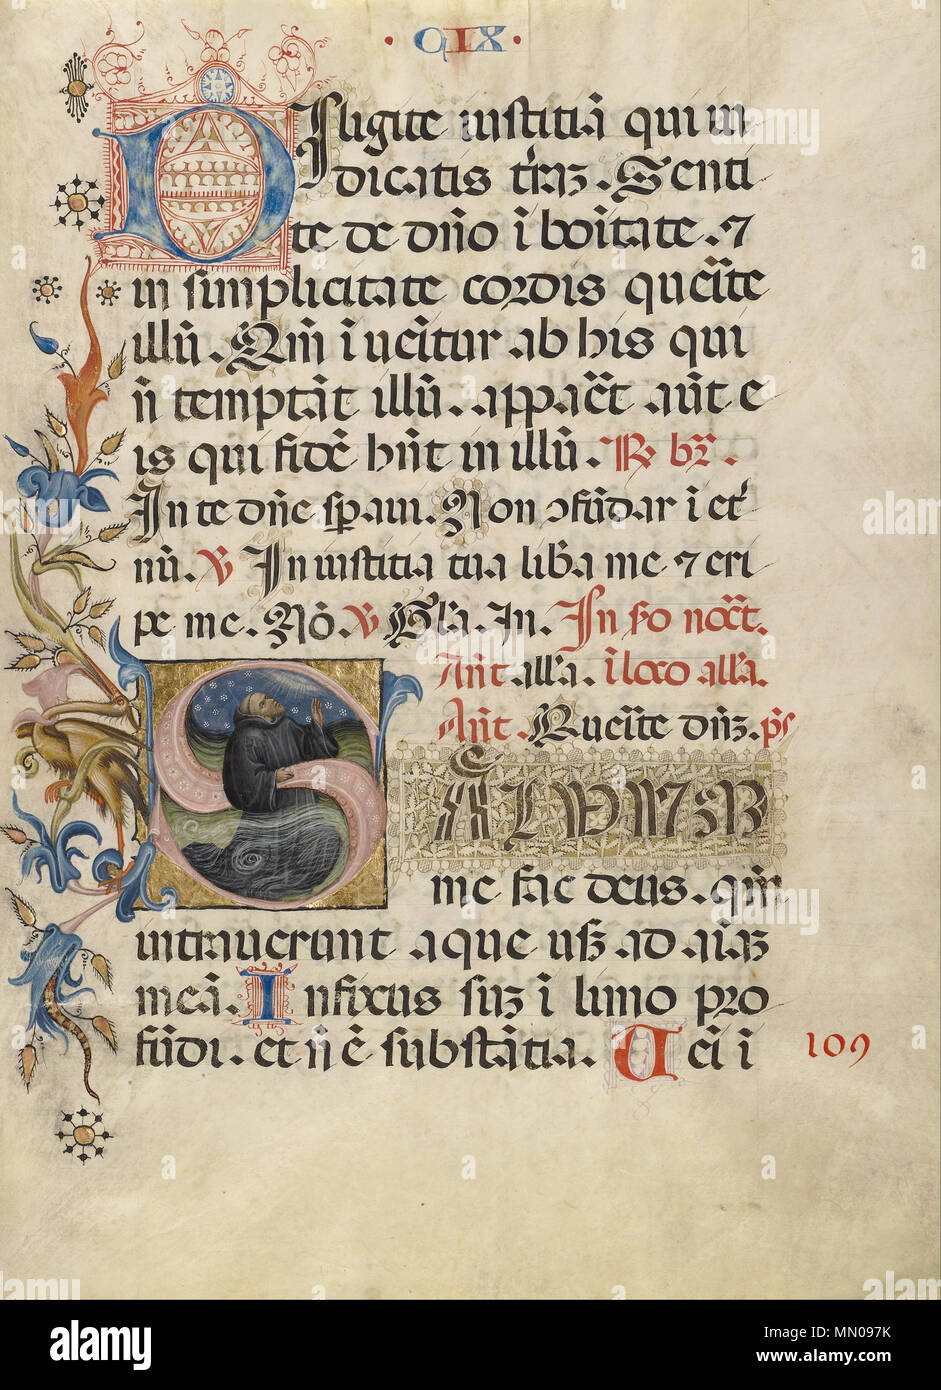 · CIX ·
Diligite iustitiā qui iu
dicatis t'rā. Senti
te de dn̄o ī boītate. ⁊
in simplicitate cordis querīte
illū. Qm̄ īueītur ab his qui
n̄ temptāt illū. appar̄et aūt e
is qui fidē hn̄t in illū. R̸ br̄.
In te dn̄e sp̄aui. Non ↄfūdar ī et'
nū. V In iustitia tua lib̄a me ⁊ eri
pe me. Nō. V Gl̄a. In. In sc̄o noct̄.
Ant̄ all̄a. ī loco all̄a.
Ant̄. Querīte dn̄ʒ. ps
SALVUM
me fac deus. qm̄
intrauerunt aque usq̄ ad aīaʒ
meā. Infixus suʒ ī limo pro
fūdi. et n̄ ē substātia. Ueī ī
109
alamy
Image ID: MN097K
www.alamy.com